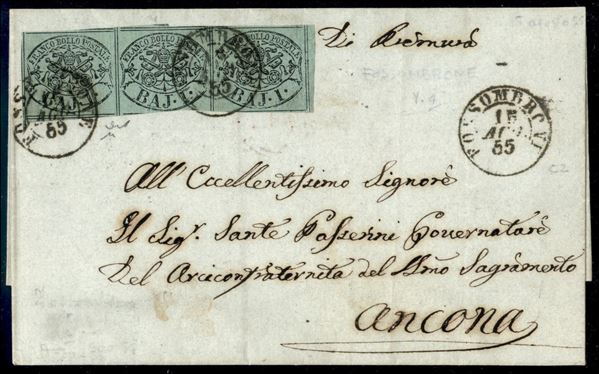 FRANCO BOLLO POSTALE FRANCO BOLLO POSTALE FRANCO BOLLO POSTALE
BAJ. 1. BAJ. 1. BAJ. 1.
FOSSOMBRONE
AGO
55
FOSSOMBRONE
55
Di
FOSSOMBRONE
FOSSOMBRONE
15
AGO
55
All' Eccellentissimo Signore
Il Sigr. Sante Passerini Governatore
Del Arciconfraternita del Smo Sagramento
Ancona